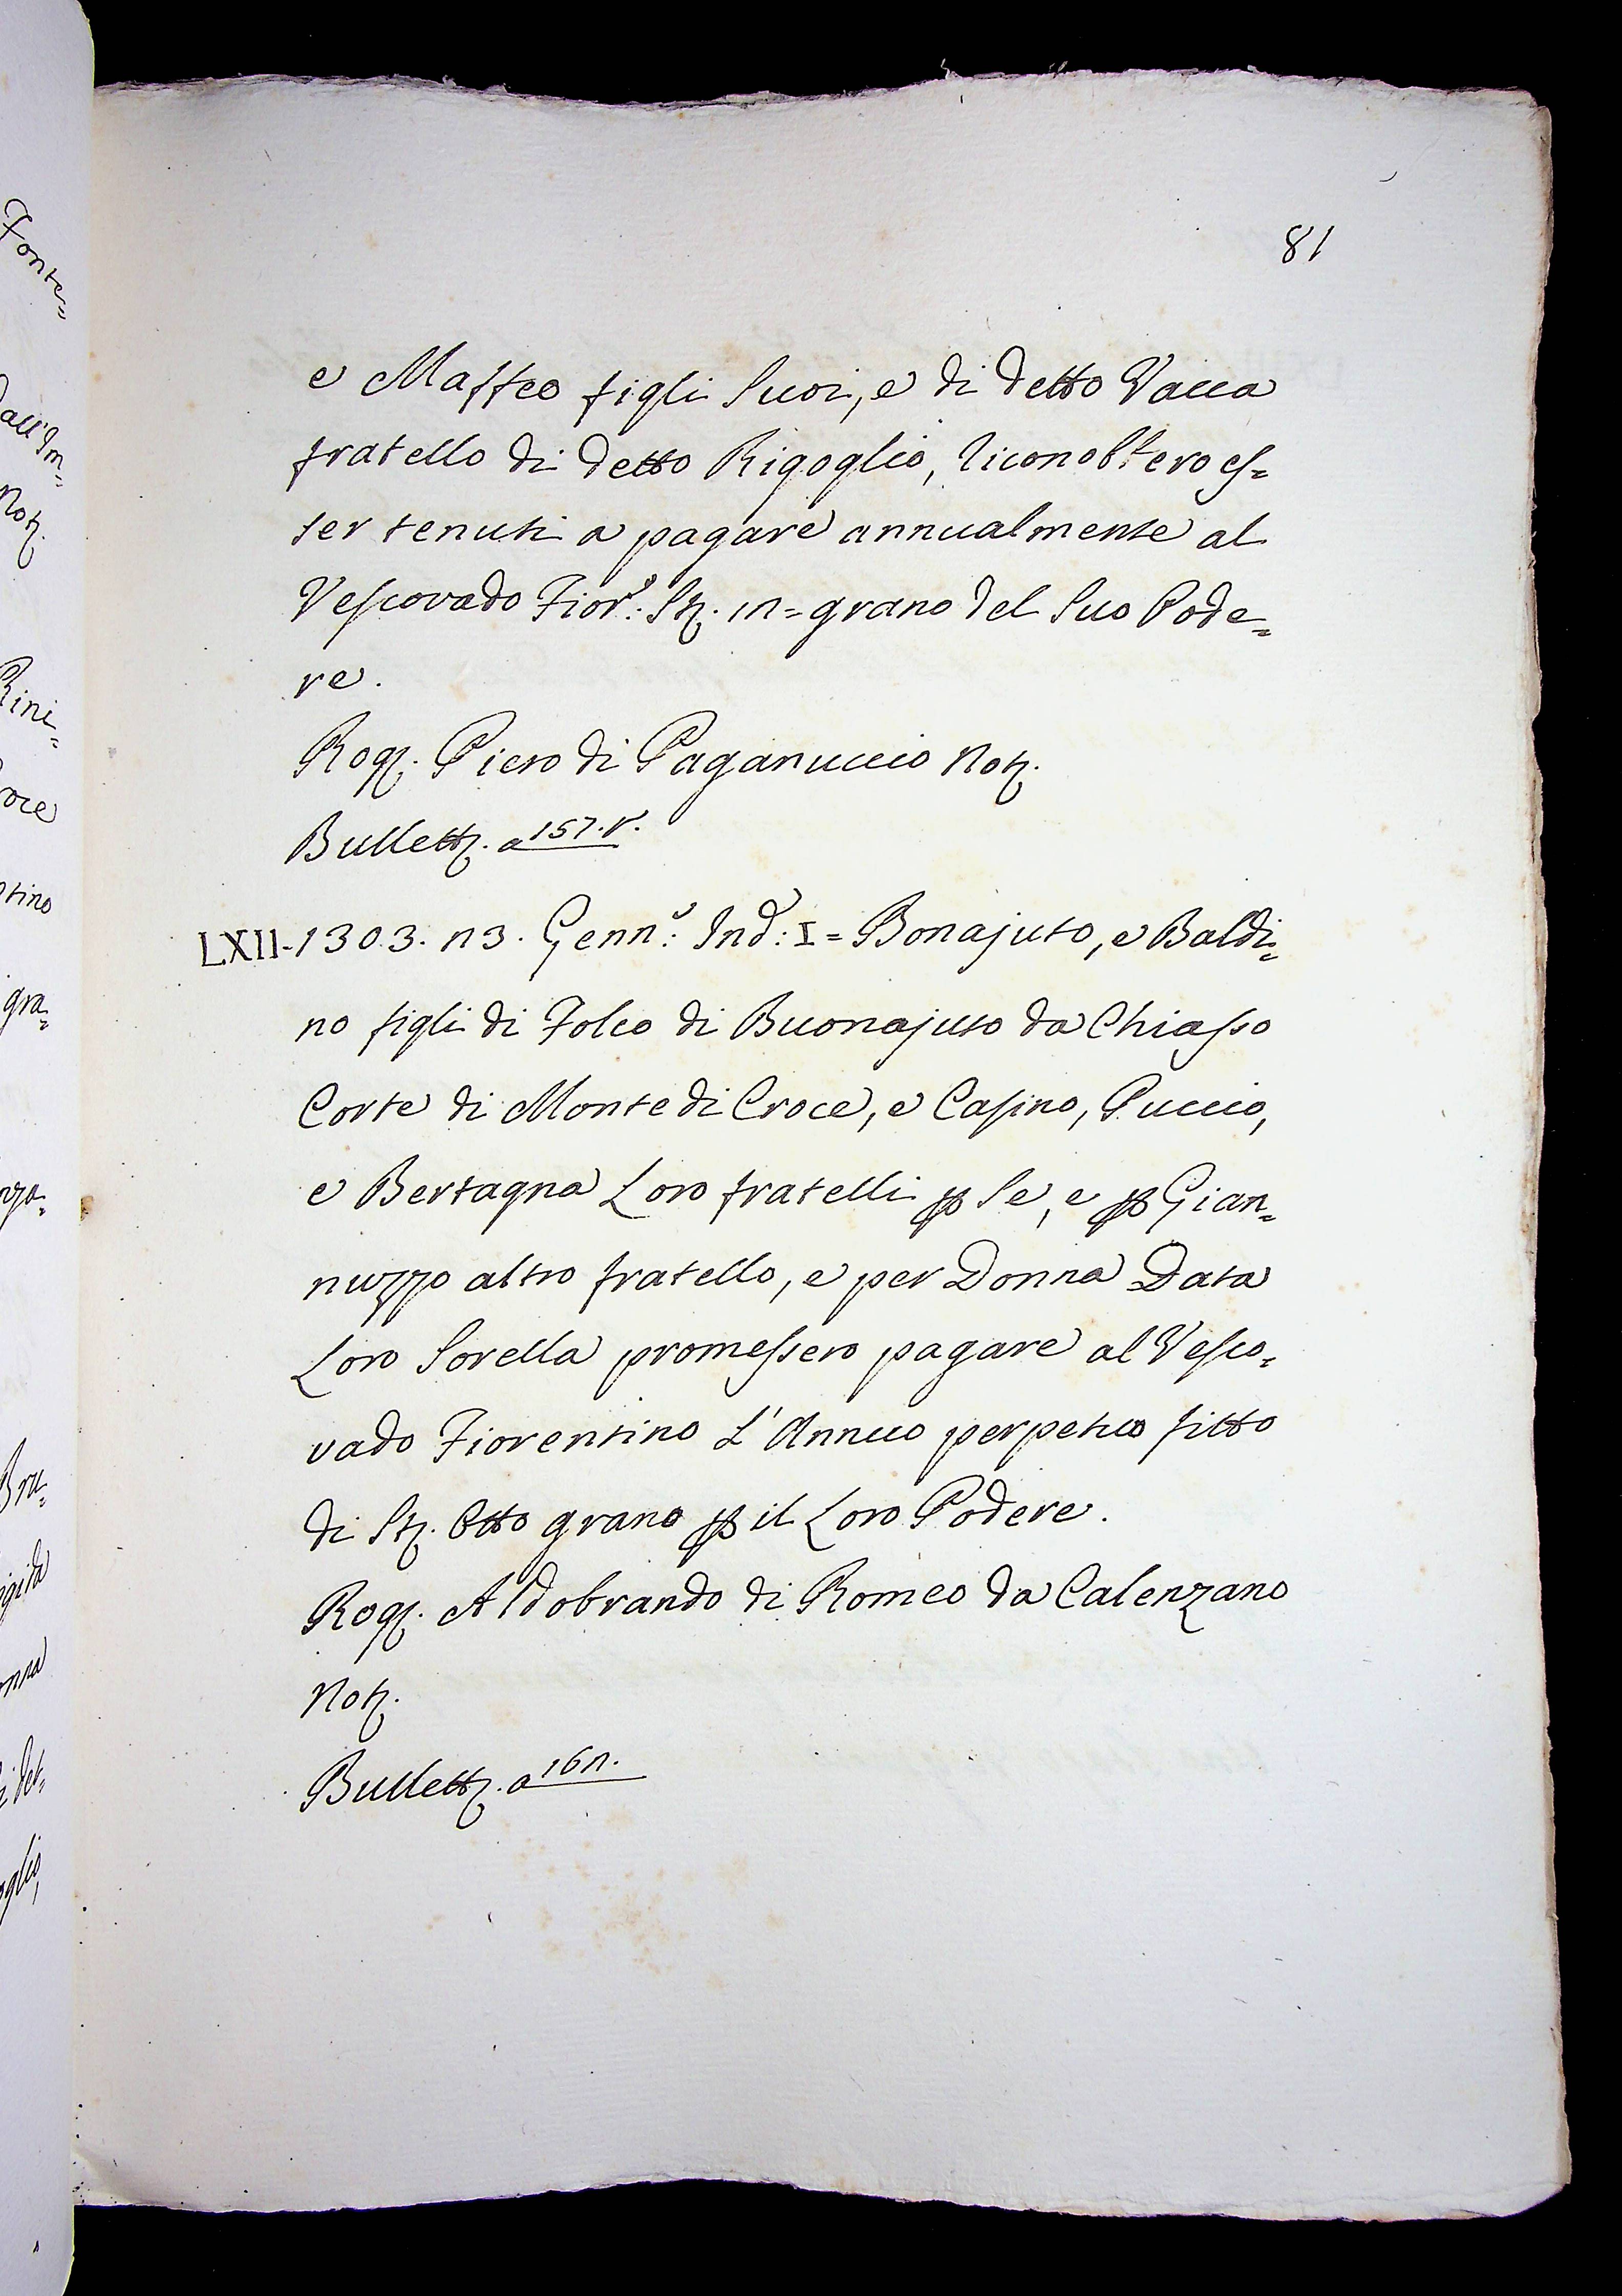 81
e Maffeo figli Suoi, e di detto Vacca
fratello di detto Rigoglio, riconobbero es=
ser tenuti a pagare annualmente al
Vescovado Fior.º: St. 12= grano del Suo Pode=
re.
Rog. Piero di Paganuccio Not.
Bullett. a 157. v.
LXII- 1303. 23. Genn.º: Ind.: I = Bonajuto, e Baldi=
no figli di Folco di Buonajuto da Chiasso
Corte di Monte di Croce, e Casino, Puccio,
e Bertagna Loro fratelli p Se, e p Gian=
nuzzo altro fratello, e per Donna Data
Loro Sorella promessero pagare al Vesco=
vado Fiorentino L'Annuo perpetuo fitto
di St. Otto grano p il Loro Podere.
Rog. Aldobrando di Romeo da Calenzano
Not.
Bullett. a 162.